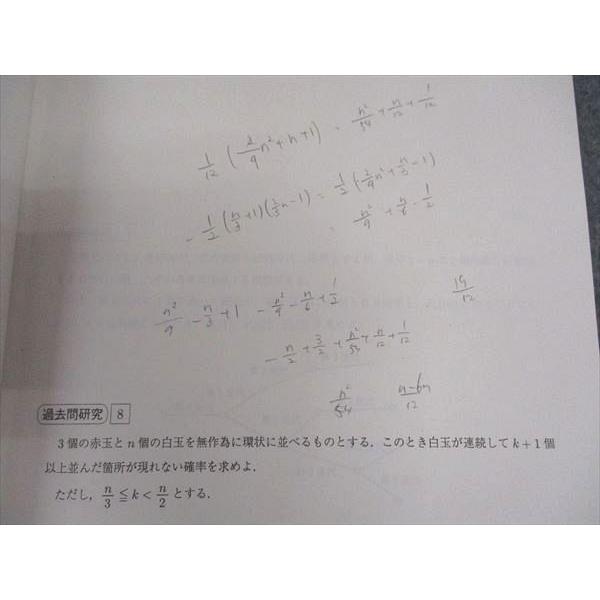 1/12 (2/9 n² + n + 1) = n²/54 + n/12 + 1/12
- 1/2 (n/3 + 1)(2/3 n - 1) = 1/2 (2/9 n² + n/3 - 1)
= n²/9 + n/6 - 1/2
n²/9 - n/3 + 1 - n²/9 - n/6 + 1/2
19/12
- n/2 + 3/2 + n²/54 + n/12 + 1/12
n²/54 n-6n/12
過去問研究 8
3個の赤玉とn個の白玉を無作為に環状に並べるものとする.このとき白玉が連続してk+1個
以上並んだ箇所が現れない確率を求めよ.
ただし, n/3 ≦ k < n/2 とする.